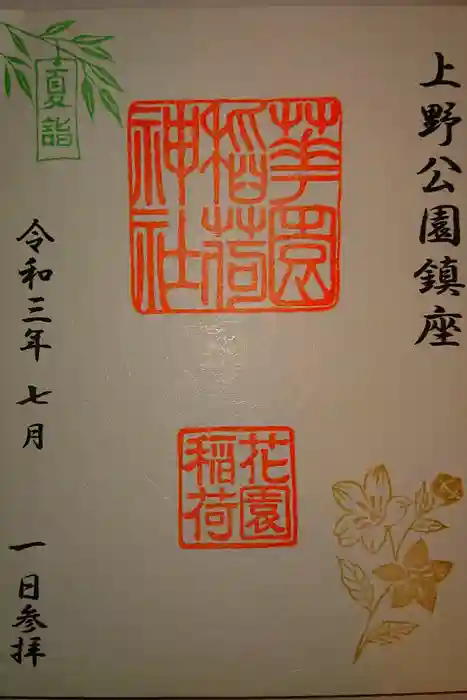 上野公園鎮座
華園
稲荷
神社
花園
稲荷
夏詣
令和三年 七月 一日参拝